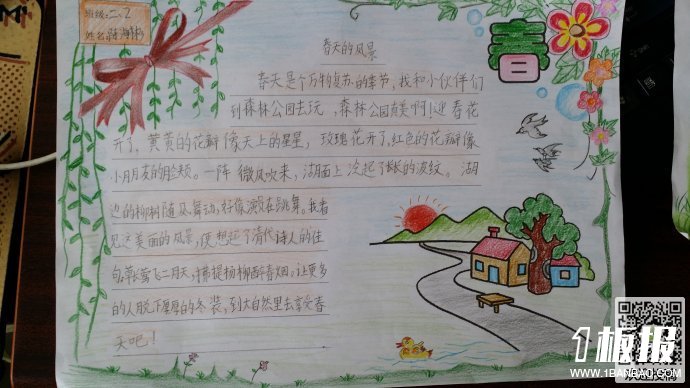 班级:二、2
姓名:
春
春天的风景
春天是个万物复苏的季节,我和小伙伴们
到森林公园去玩,森林公园真美啊!迎春花
开了,黄黄的花瓣像天上的星星,玫瑰花开了,红色的花瓣像
小朋友的脸颊。一阵微风吹来,湖面上泛起了长长的波纹。湖
边的柳树随风舞动,好像在跳舞。我看
见这美丽的风景,便想起了清代诗人的佳
句:草长莺飞二月天,拂提杨柳醉春烟。让更多
的人脱下厚厚的冬装,到大自然里去享受春
天吧!
1板报
WWW.1BANBAO.COM